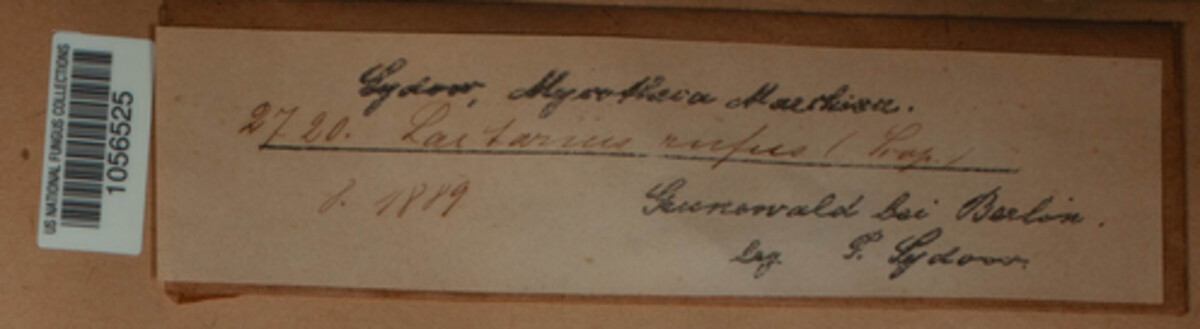 US NATIONAL FUNGUS COLLECTIONS
1056525
Sydow, Mycotheca Marchica.
2720. Lactarius rufus (Scop.)
8. 1889
Grunewald bei Berlin.
leg. P. Sydow.